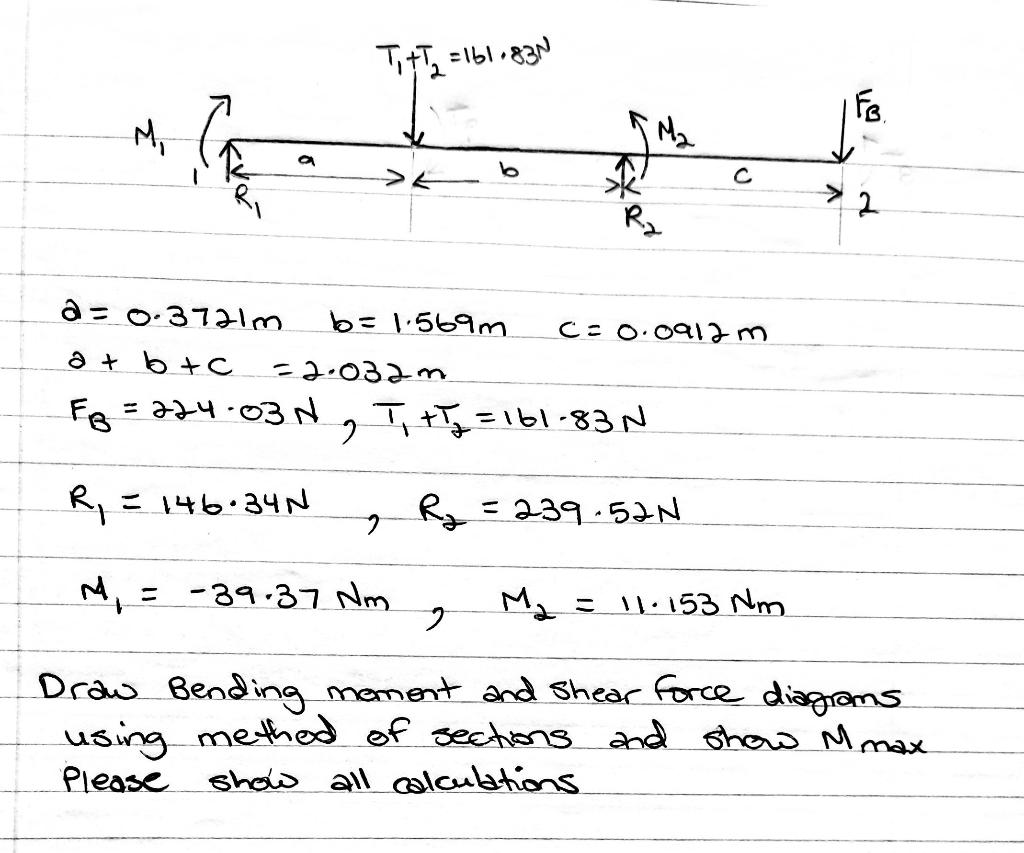 T₁+T₂ =161.83N
F_B.
M₁
M₂
a
b
c
1
R₁
R₂
2
a = 0.3721m b = 1.569m c = 0.0912m
a + b + c = 2.032m
F_B = 224.03 N , T₁ + T₂ = 161.83 N
R₁ = 146.34N , R₂ = 239.52N
M₁ = -39.37 Nm , M₂ = 11.153 Nm
Draw Bending moment and shear force diagrams
using method of sections and show M max
Please show all calculations